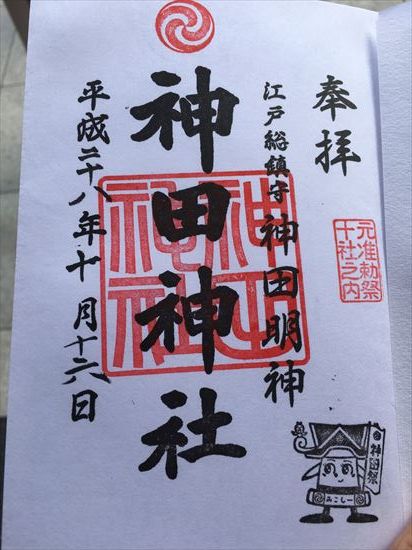 奉拝
江戸総鎮守 神田明神
元准勅祭
十社之内
神田神社
神田
神社
平成二十八年十月十六日
神田祭
みこしー